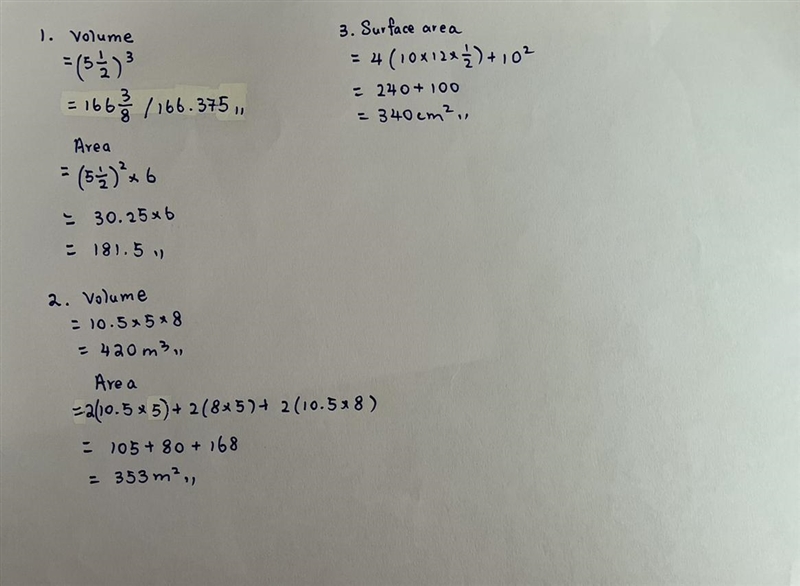 1. Volume
= (5 1/2)³
= 166 3/8 / 166.375 ,,
Area
= (5 1/2)² × 6
= 30.25 × 6
= 181.5 ,,
2. Volume
= 10.5 × 5 × 8
= 420 m³ ,,
Area
= 2(10.5 × 5) + 2(8 × 5) + 2(10.5 × 8)
= 105 + 80 + 168
= 353 m² ,,
3. Surface area
= 4(10 × 12 × 1/2) + 10²
= 240 + 100
= 340 cm² ,,